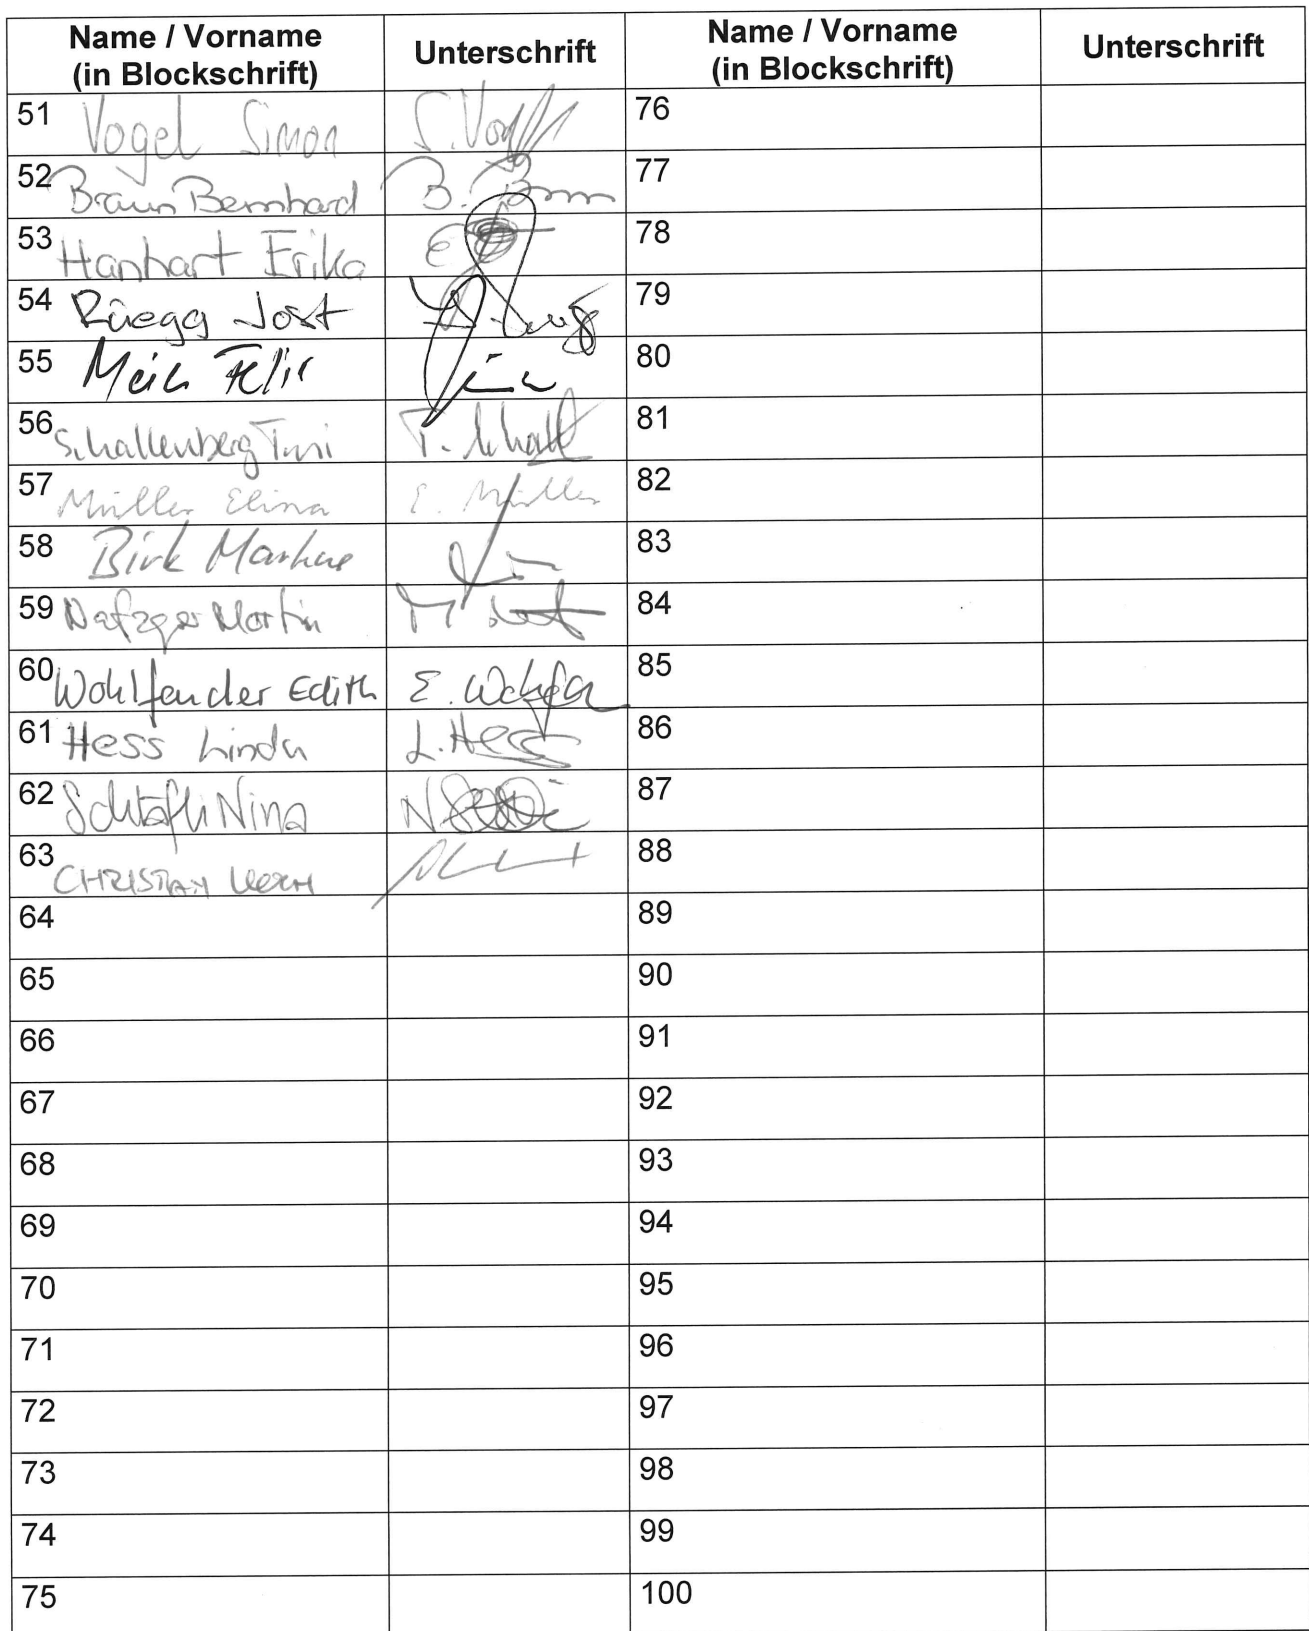 Name / Vorname Unterschrift Name / Vorname Unterschrift
(in Blockschrift) (in Blockschrift)
51 Vogel Simon S. Vog 76
52 Braun Bernhard B. 77
53 Hanhart Erika E 78
54 Rüegg Jost 79
55 Meili Felix 80
56 Schallenberg Turi T. Schall 81
57 Müller Elina E. Müller 82
58 Birk Markus 83
59 Nafzger Martin M 84
60 Wohlfender Edith E. Wohlfe 85
61 Hess Linda L. Hess 86
62 Schläfli Nina N 87
63 CHRISTIAN KOCH 88
64 89
65 90
66 91
67 92
68 93
69 94
70 95
71 96
72 97
73 98
74 99
75 100